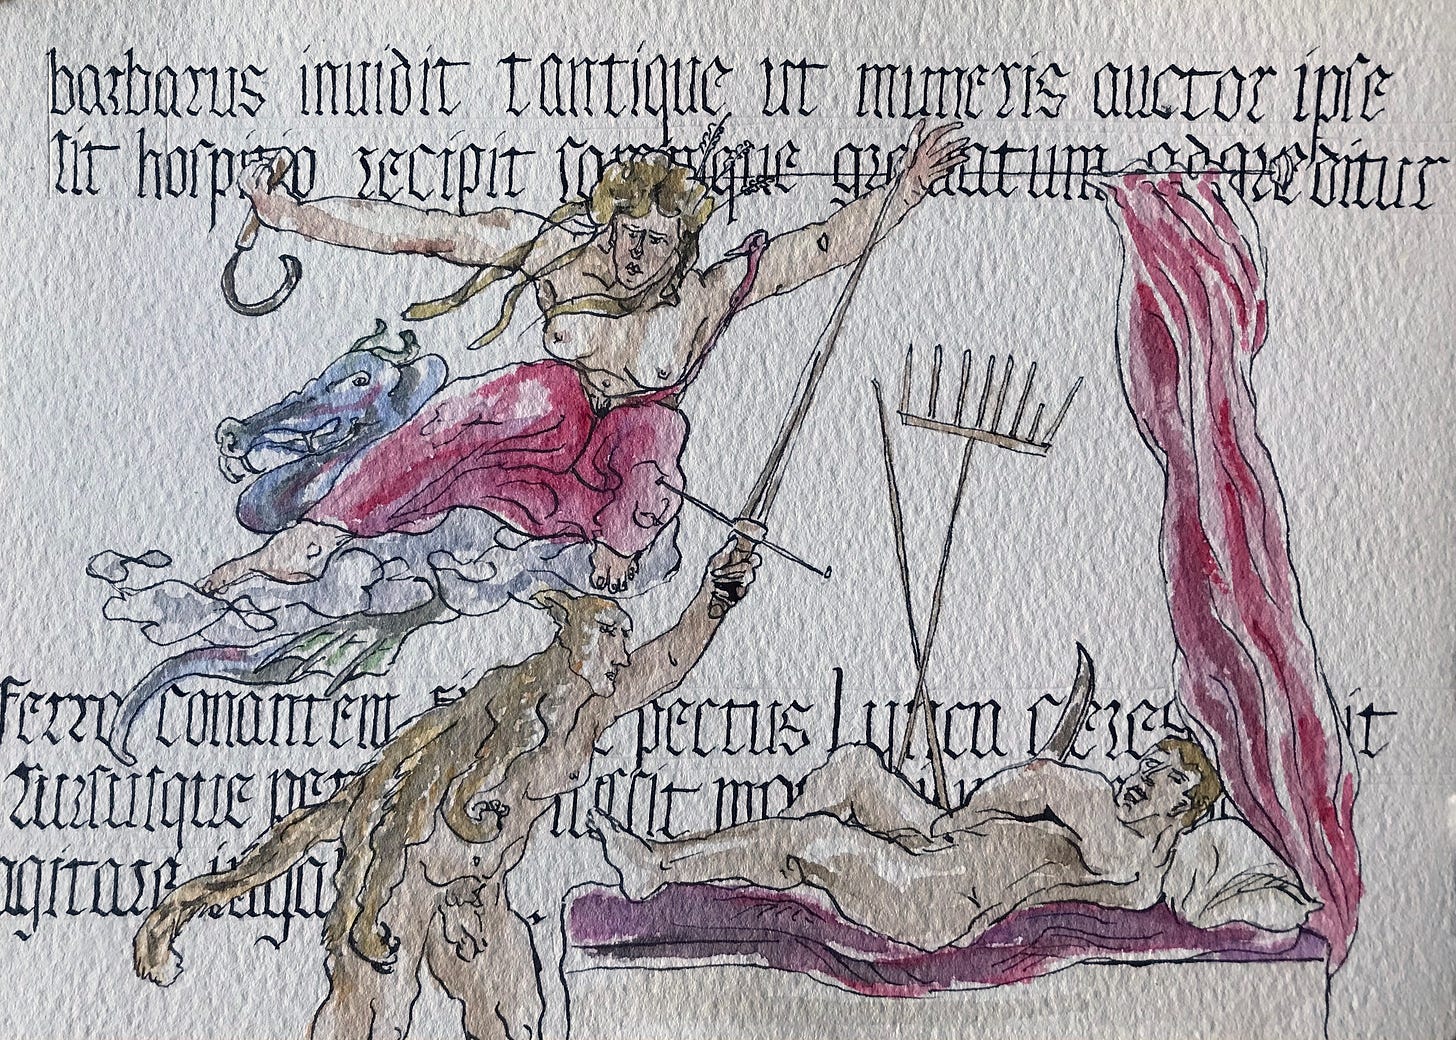 barbarus inuidit tantique ut muneris auctor ipse
sit hospitio recipit somnoque grauatum adgreditur
ferro conantem pectus Lynca Ceres
rursusque per iussit
agitare